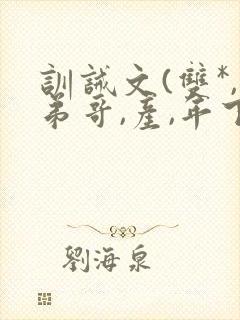 訓誡文(雙*,
弟哥,產,年下
劉海泉